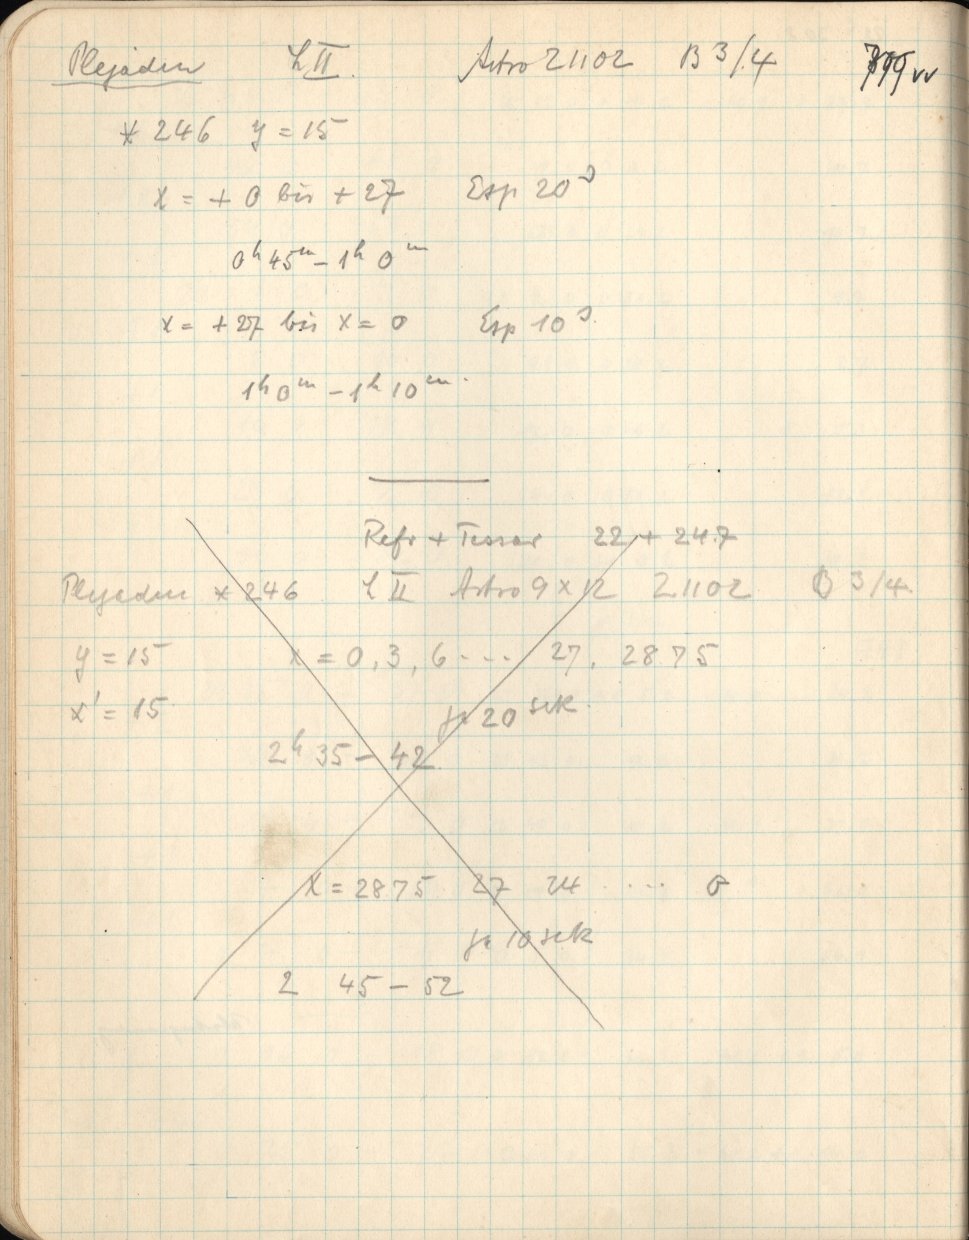 Plejaden L II. Astro 21102 B 3/4
* 246 y = 15
x = + 0 bis + 27 Exp 20ˢ
0ʰ 45ᵐ – 1ʰ 0ᵐ
x = + 27 bis x = 0 Exp 10ˢ.
1ʰ 0ᵐ – 1ʰ 10ᵐ.
Refr + Tessar 22 + 24.7
Plejaden * 246 L II Astro 9 x 12 21102 B 3/4.
y = 15 x = 0, 3, 6 .... 27, 28 75
x' = 15 je 20 sek.
2ʰ 35 – 42
x = 28 75 27 24 .... 0
je 10 sek
2 45 – 52